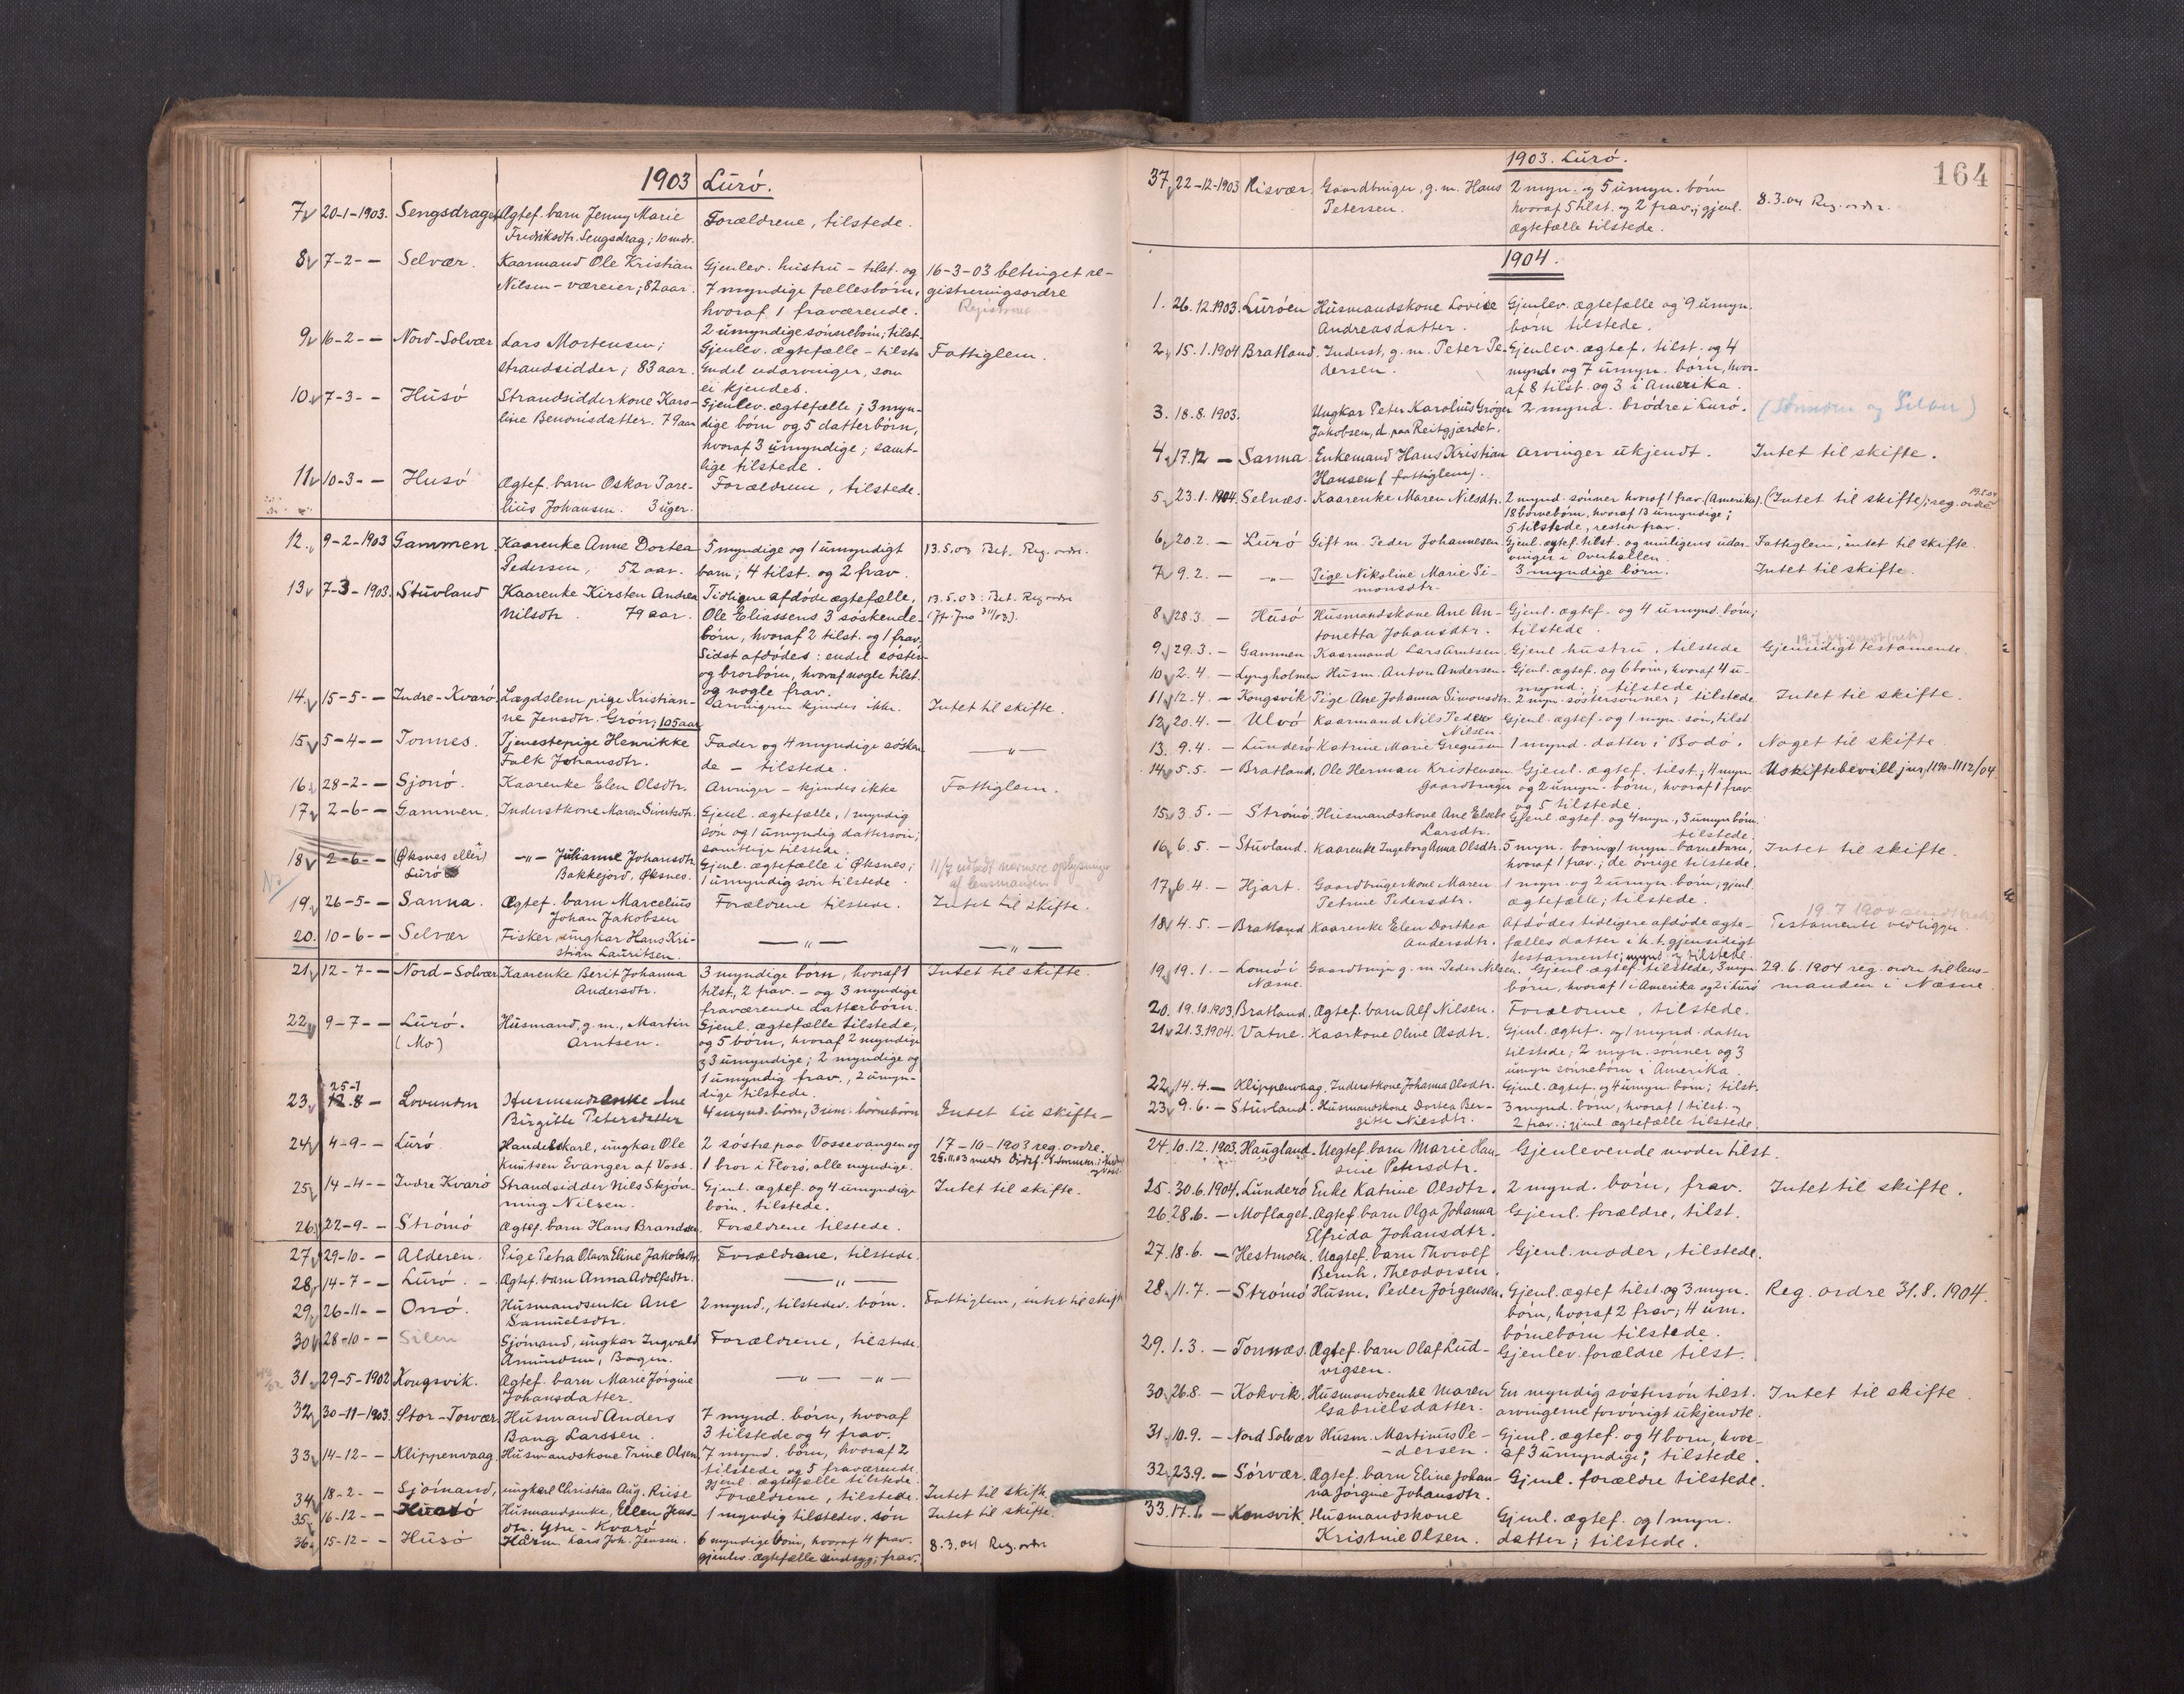 1903 Lurö.
7 20-1-1903. Sengsdraget Ægtef. barn Jenny Marie Forældrene, tilstede.
Fredriksdtr. Sengsdrag; 10 mdr.
8 7-2- - Selvær. Kaarmand Ole Kristian Gjenlev. hustru - tilst. og 16-3-03 betinget re-
Nilsen - væreier; 82 aar. 7 myndige fællesbörn, gistreringsordre
hvoraf 1 fraværende. Registreret
2 umyndige sönnebörn; tilst.
9 16-2- - Nord-Solvær Lars Mortensen; Gjenlev. ægtefælle - tilst. Fattiglem.
strandsidder; 83 aar. Endel udarvinger, som
ei kjendes.
10 7-3- - Husö Strandsidderkone Karo- Gjenlev. ægtefælle; 3 myn-
line Benonisdatter. 79 aar dige börn og 5 datterbörn,
hvoraf 3 umyndige; samt-
lige tilstede.
11 10-3- - Husö Ægtef. barn Oskar Tore- Forældrene, tilstede.
lius Johansen. 3 uger.
12. 9-2-1903 Gammen Kaarenke Anne Dortea 5 myndige og 1 umyndigt 13.5.03 Bet. Reg. ordre.
Pedersen, 52 aar. barn; 4 tilst. og 2 frav.
13 7-3-1903. Stuvland Kaarenke Kirsten Andrea Tidligere afdöde ægtefælle, 13.5.03: Bet. Reg ordre
Nilsdtr. 79 aar. Ole Eliassens 3 söskende-
börn, hvoraf 2 tilst. og 1 frav.
Sidst afdödes: endel söster-
og brorbörn, hvoraf nogle tilst.
og nogle frav.
14. 15-5- - Indre-Kvarö Lægdslem pige Kristian- Arvingerne kjendes ikke. Intet til skifte.
ne Jensdtr. Grön; 105 aar
15 5-4- - Tonnes. Tjenestepige Henrikke Fader og 4 myndige sösken- —"—
Falk Johansdtr. de - tilstede.
16. 28-2- - Sjonö. Kaarenke Elen Olsdtr. Arvinger - kjendes ikke Fattiglem.
17 2-6- - Gammen. Inderstkone Maren Sivertsdtr. Gjenl. ægtefælle, 1 myndig
sön og 1 umyndig dattersön;
samtlige tilstede.
18 2-6- - (Øksnes eller) -"- Julianne Johansdtr. Gjenl. ægtefælle i Øksnes; 11/7 udbedt nærmere oplysninger
Lurö Bakkejord, Øksnes. 1 umyndig sön tilstede. af lensmanden
No
19 26-5- - Sanna. Ægtef. barn Marcelius Forældrene tilstede. Intet til skifte.
Johan Jakobsen
20. 10-6- - Selvær Fisker, ungkar Hans Kri- —"— —"—
stian Lauritsen.
21 12-7- - Nord-Solvær Kaarenke Berit Johanna 3 myndige börn, hvoraf 1 Intet til skifte.
Andersdtr. tilst., 2 frav. - og 3 myndige
fraværende datterbörn.
22 9-7- - Lurö. Husmand, g.m., Martin Gjenl. ægtefælle tilstede,
(Mo) Arntsen. og 5 börn, hvoraf 2 myndige
3 umyndige; 2 myndige og
1 umyndig frav., 2 umyn-
dige tilstede.
25-7
23. 12.8 - Lovunden Husmandsenke Ane 4 mynd. börn, 3 um. börnebörn Intet til skifte -
Birgitte Petersdatter
24 4-9- - Lurö Handelskarl, ungkar Ole 2 söstre paa Vossevangen og 17-10-1903 reg. ordre.
Knutsen Evanger af Voss. 1 bror i Florö, alle myndige. 25.11.03
25 14-4- - Indre Kvarö Strandsidder Nils Skjön- Gjenl. ægtef. og 4 umyndige Intet til skifte.
ning Nilsen. börn. tilstede.
26. 22-9- - Strömö Ægtef. barn Hans Brandsen. Forældrene tilstede.
27 29-10- - Alderen. Pige Petra Olava Eline Jakobsdtr. Forældrene, tilstede.
28 14-7- - Lurö. - Ægtef. barn Anna Adolfsdtr. —"—
29 26-11- - Onö. Husmandsenke Ane 2 mynd., tilstedev. börn. Fattiglem, intet til skifte
Samuelsdtr.
30 28-10- - Silen Sjömand, ungkar Ingvald Forældrene, tilstede.
Amundsen, Bogen.
31 29-5-1902 Kongsvik. Ægtef. barn Marie Jörgine —"— —"—
Johansdatter.
32 30-11-1903. Stor-Torvær. Husmand Anders 7 mynd. börn, hvoraf
Bang Larssen. 3 tilstede og 4 frav.
33 14-12- - Klippenvaag. Husmandskone Trine Olsen 7 mynd. börn, hvoraf 2
tilstede og 5 fraværende
gjenl. ægtefælle tilstede.
34 18-2- - Sjömand, ungkarl Christian Aug. Riise Forældrene, tilstede. Intet til skifte
35 16-12- - Husö Husmandsenke, Ellen Jens- 1 myndig tilstedev. sön Intet til skifte.
dtr. Ytre - Kvarö
36 15-12- - Husö Husm. Lars Joh. Jensen. 6 myndige börn, hvoraf 4 frav. 8.3.04 Reg. ordre
gjenlev. ægtefælle sindsyg; frav.
164
1903. Lurö.
37 22-12-1903 Risvær. Gaardbruger, g.m. Hans 2 myn. og 5 umyn. börn 8.3.04 Reg. ordre.
Petersen. hvoraf 5 tilst. og 2 frav.; gjenl.
ægtefælle tilstede.
1904.
1. 26.12.1903. Luröen Husmandskone Lovise Gjenlev. ægtefælle og 9 umyn.
Andreasdatter. börn tilstede.
2. 15.1.1904 Bratland. Inderst, g.m. Peter Pe- Gjenlev. ægtef. tilst. og 4
dersen. mynd. og 7 umyn. börn, hvor-
af 8 tilst. og 3 i Amerika.
3. 18.8.1903. Ungkar Peter Karolius Gröger 2 mynd. brödre i Lurö.
Jakobsen, d. paa Reitgjærdet.
4 17.12 - Sanna. Enkemand Hans Kristian Arvinger ukjendt. Intet til skifte.
Hansen (fattiglem).
5 23.1.1904. Selnæs. Kaarenke Maren Nilsdtr. 2 mynd. sönner hvoraf 1 frav. (Amerika). (Intet til skifte); reg. ordre
18 börnebörn, hvoraf 13 umyndige;
5 tilstede, resten frav.
6 20.2. - Lurö Gift m. Peder Johannesen. Gjenl. ægtef. tilst. og muligens udar- Fattiglem, intet til skifte.
vinger i Overhallen.
7 9.2. - -"- Pige Nikoline Marie Si- 3 myndige börn. Intet til skifte.
monsdtr.
8 28.3. - Husö Husmandskone Ane An- Gjenl. ægtef. og 4 umynd. börn;
tonetta Johansdtr. tilstede
9. 29.3. - Gammen Kaarmand Lars Arntsen. Gjenl. hustru, tilstede Gjensidigt testamente.
10 2.4. - Lyngholmen Husm. Anton Andersen. Gjenl. ægtef. og 6 börn, hvoraf 4 u-
mynd.; tilstede
11 12.4. - Kongsvik Pige Ane Johanna Simonsdtr. 2 myn. söstersönner; tilstede Intet til skifte.
12 20.4. - Ulvö Kaarmand Nils Peder Gjenl. ægtef. og 1 myn. sön, tilst
Nilsen.
13. 9.4. - Lunderö Katrine Marie Gregusen 1 mynd. datter i Bodö. Noget til skifte
14 5.5. - Bratland. Ole Herman Kristensen Gjenl. ægtef. tilst.; 4 myn. Uskiftebevill. jnr. 1190-1112/04
Gaardbruger og 2 umyn. börn, hvoraf 1 frav.
og 5 tilstede.
15 3.5. - Strömö. Husmandskone Ane Elsebe Gjenl. ægtef. og 4 myn., 3 umyn börn.
Larsdtr. tilstede.
16 6.5. - Stuvland. Kaarenke Ingeborg Anna Olsdtr. 5 myn. börn og 1 myn. barnebarn, Intet til skifte.
hvoraf 1 frav.; de övrige tilstede.
17 6.4. - Hjart. Gaardbrugerkone Maren 1 myn. og 2 umyn. börn; gjenl.
Petrine Pedersdtr. ægtefælle; tilstede.
18 4.5. - Bratland Kaarenke Elen Dorthea Afdödes tidligere afdöde ægte- Testamente vedligger.
Andersdtr. fælles datter i h.t. gjensidigt
testamente; mynd. og tilstede.
19 19.1. - Lomö i Gaardbruger g.m. Peder Nilsen. Gjenl. ægtef. tilstede, 3 myn. 29.6.1904 reg. ordre til lens-
Næsne. börn, hvoraf 1 i Amerika og 2 i Lurö manden i Næsne.
20. 19.10.1903. Bratland. Ægtef. barn Alf Nilsen. Forældrene, tilstede.
21 21.3.1904. Vatne. Kaarkone Oline Olsdtr. Gjenl. ægtef. og 1 mynd. datter
tilstede; 2 myn. sönner og 3
umyn sönnebörn i Amerika.
22 14.4. - Klippenvaag. Inderstkone Johanna Olsdtr. Gjenl. ægtef. og 4 umyn. börn; tilst.
23 9.6. - Stuvland. Husmandskone Dortea Ber- 3 mynd. börn, hvoraf 1 tilst. og
gitte Nilsdtr. 2 frav.; gjenl. ægtefælle tilstede.
24. 10.12.1903. Haugland. Uegtef. barn Marie Han- Gjenlevende moder tilst.
sine Petersdtr.
25. 30.6.1904. Lunderö Enke Katrine Olsdtr. 2 mynd. börn, frav. Intet til skifte.
26. 28.6. - Moflaget. Ægtef. barn Olga Johanna Gjenl. forældre, tilst.
Elfrida Johansdtr.
27. 18.6. - Hestmoen. Uegtef. barn Thorolf Gjenl. moder, tilstede.
Bernh. Theodorsen.
28. 11.7. - Strömö Husm. Peder Jörgensen. Gjenl. ægtef. tilst. og 3 myn. Reg. ordre 31.8.1904.
börn, hvoraf 2 frav; 4 um.
börnebörn tilstede.
29. 1.3. - Tonnæs. Ægtef. barn Olaf Lud- Gjenlev. forældre tilst.
vigsen.
30. 26.8. - Kokvik. Husmandsenke Maren En myndig söstersön tilst. Intet til skifte
Gabrielsdatter. arvingerne forövrigt ukjendte.
31. 10.9. - Nord Solvær Husm. Martinus Pe- Gjenl. ægtef. og 4 börn, hvor-
-dersen. af 3 umyndige; tilstede.
32. 23.9. - Sörvær. Ægtef. barn Eline Johan- Gjenl. forældre tilstede.
na Jörgine Johansdtr.
33. 17.6 - Konsvik Husmandskone Gjenl. ægtef. og 1 myn.
Kristine Olsen. datter; tilstede.